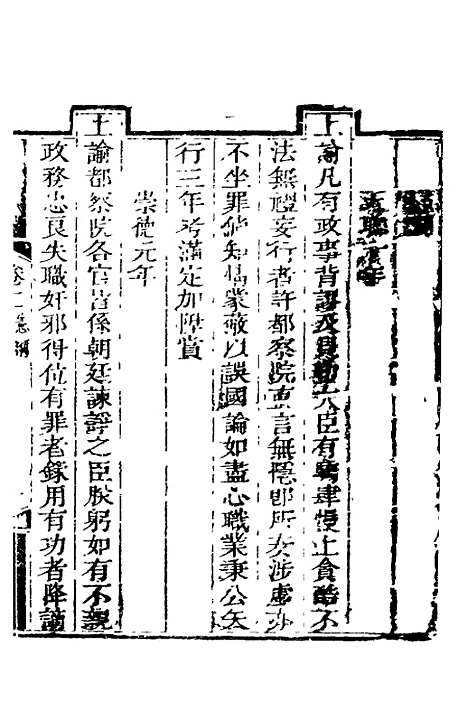 天聰
上諭凡有政事背謬及貝勒大臣有驕肆慢上貪酷不
法無禮妄行者許都察院直言無隱即所奏涉虛亦
不坐罪倘知情蒙蔽以誤國論如盡心職業秉公矢
行三年考滿定加陞賞
崇德元年
上諭都察院各官皆係朝廷諫諍之臣朕躬如有不親
政務忠良失職奸邪得位有罪者錄用有功者降謫
卷二